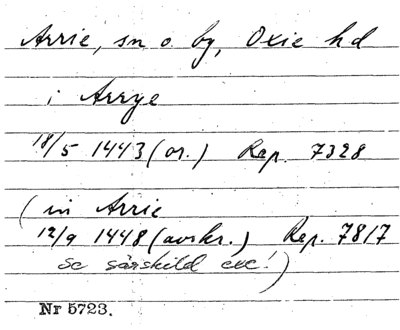 Arrie, sn o. by, Oxie hd
i Arrye
18/5 1443 (or.) Rep. 7328
(in Arrie
12/9 1448 (avskr.) Rep. 7817
se särskild exc!)
Nr 5723.